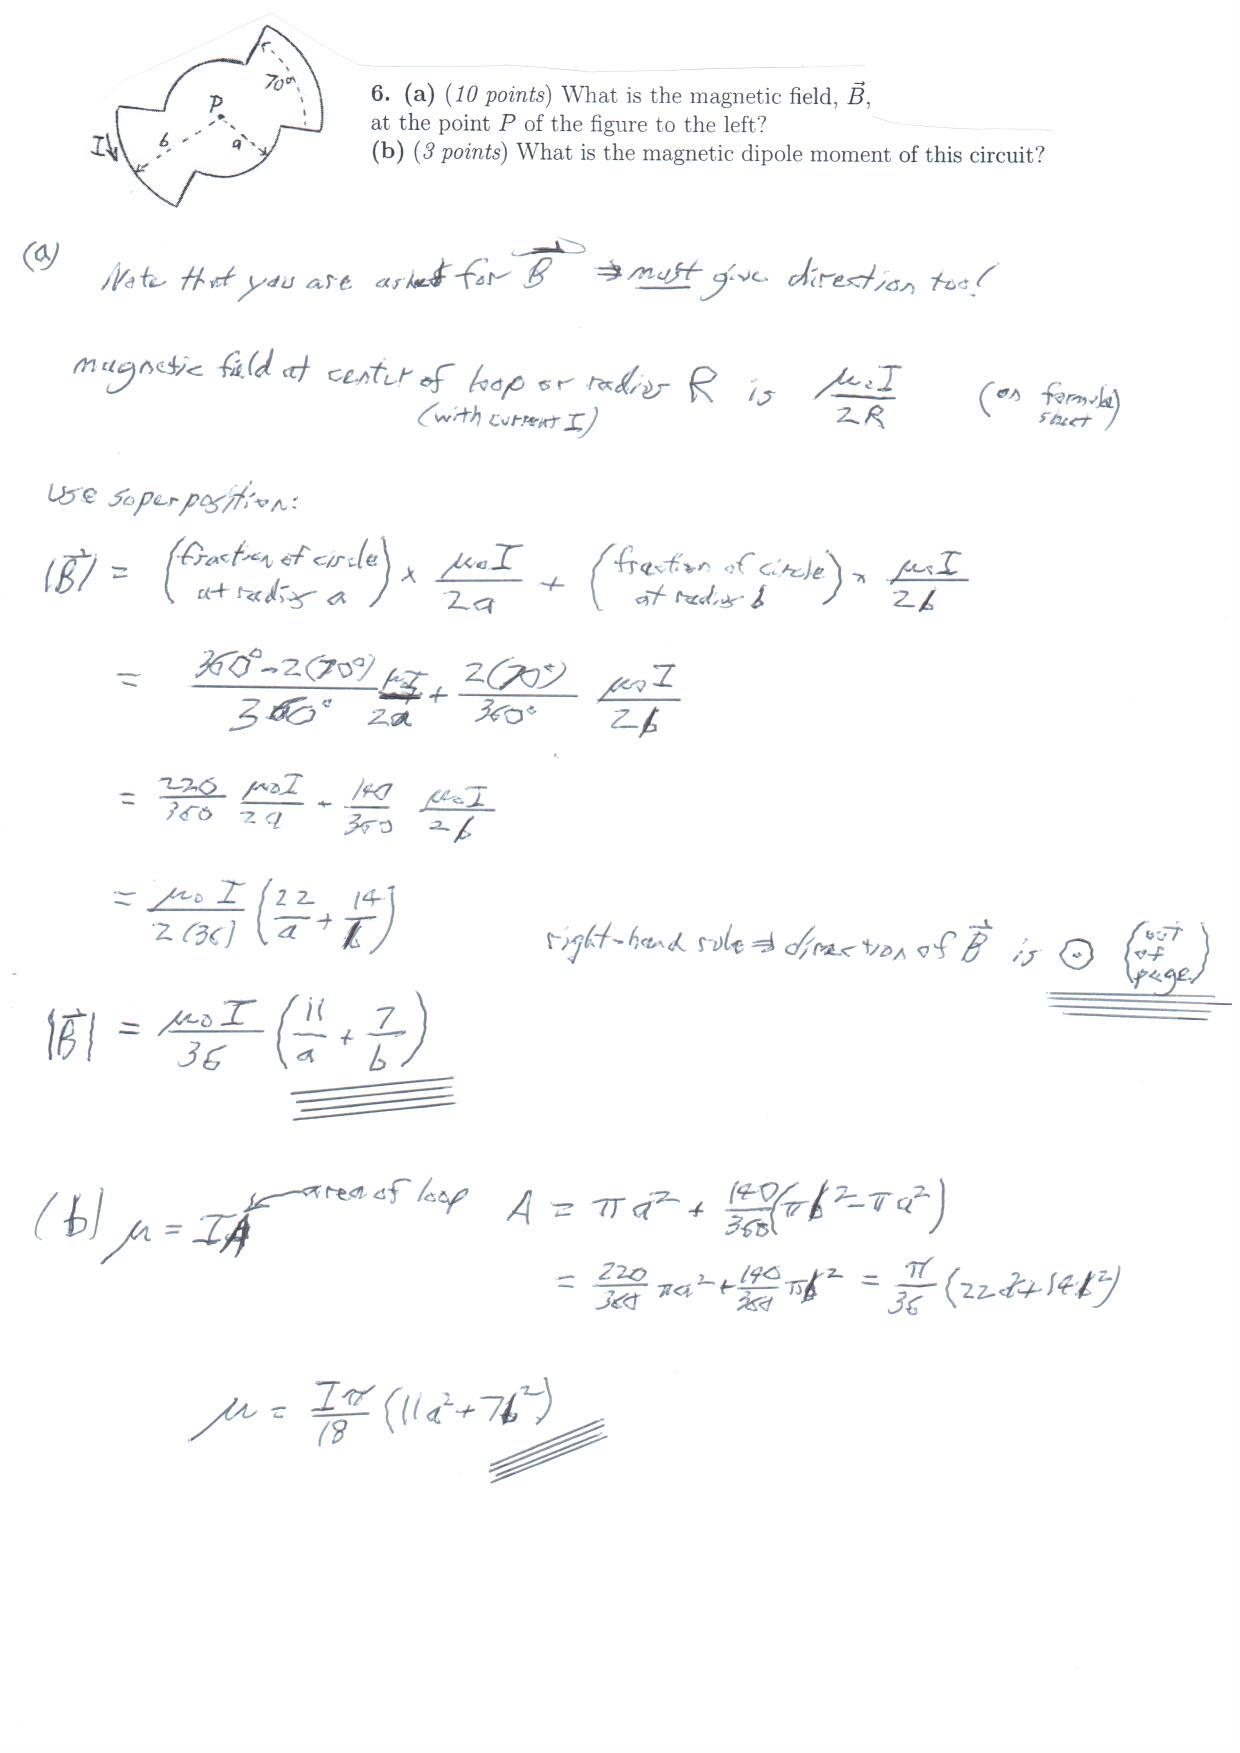 P
70°
b
a
I↓
6. (a) (10 points) What is the magnetic field, B⃗,
at the point P of the figure to the left?
(b) (3 points) What is the magnetic dipole moment of this circuit?
(a)
Note that you are asked for B⃗ ⇒ must give direction too!
magnetic field at center of loop or radius R is μ₀I/2R (on formula sheet)
(with current I)
use superposition:
|B⃗| = (fraction of circle at radius a) × μ₀I/2a + (fraction of circle at radius b) × μ₀I/2b
= (360° - 2(70°))/360° μ₀I/2a + 2(70°)/360° μ₀I/2b
= 220/360 μ₀I/2a + 140/360 μ₀I/2b
= μ₀I/2(36) (22/a + 14/b)
right-hand rule ⇒ direction of B⃗ is ⊙ (out of page)
|B⃗| = μ₀I/36 (11/a + 7/b)
(b) μ = IA ← area of loop A = πa² + 140/360 (πb² - πa²)
= 220/360 πa² + 140/360 πb² = π/36 (22a² + 14b²)
μ = Iπ/18 (11a² + 7b²)